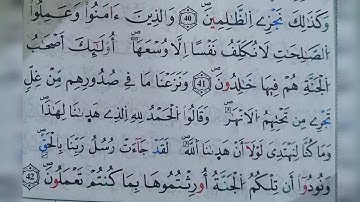 وَكَذَٰلِكَ نَجْزِي الظَّٰلِمِينَ ۝40 وَالَّذِينَ ءَامَنُوا وَعَمِلُوا
الصَّٰلِحَٰتِ لَا نُكَلِّفُ نَفْسًا إِلَّا وُسْعَهَا أُولَٰٓئِكَ أَصْحَٰبُ
الْجَنَّةِ هُمْ فِيهَا خَٰلِدُونَ ۝41 وَنَزَعْنَا مَا فِي صُدُورِهِم مِّنْ غِلٍّ
تَجْرِي مِن تَحْتِهِمُ الْأَنْهَٰرُ وَقَالُوا الْحَمْدُ لِلهِ الَّذِي هَدَىٰنَا لِهَٰذَا
وَمَا كُنَّا لِنَهْتَدِيَ لَوْلَا أَنْ هَدَىٰنَا اللَّهُ لَقَدْ جَاءَتْ رُسُلُ رَبِّنَا بِالْحَقِّ
وَنُودُوا أَن تِلْكُمُ الْجَنَّةُ أُورِثْتُمُوهَا بِمَا كُنتُمْ تَعْمَلُونَ ۝42